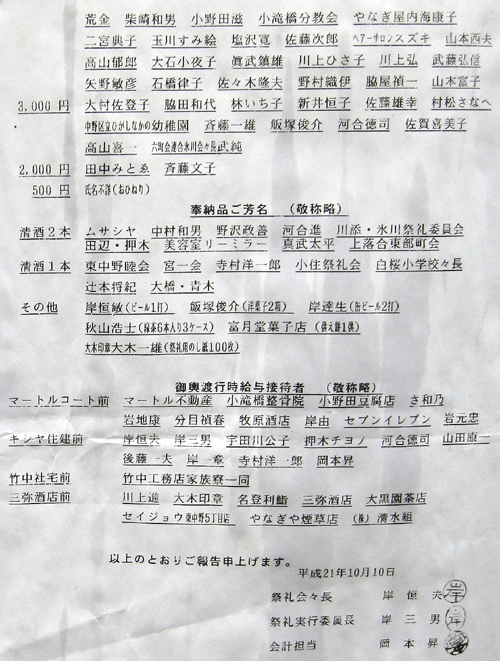 荒金　柴崎和男　小野田滋　小滝橋分教会　やなぎ屋内海康子
二宮典子　玉川すみ絵　塩沢寛　佐藤次郎　ヘアーサロンスズキ　山本西夫
高山郁郎　大石小夜子　眞武鎮雄　川上ひさ子　川上弘　武藤弘信
矢野敏彦　石橋律子　佐々木隆夫　野村織伊　脇屋禎一　山本富子
3,000 円　大村佐登子　脇田和代　林いち子　新井恒子　佐藤雄幸　村松さなへ
中野区立ひがしなかの幼稚園　斉藤一雄　飯塚俊介　河合徳司　佐賀喜美子
高山喜一　六町会連合氷川会々長武純
2,000 円　田中みとゑ　斉藤文子
500 円　氏名不詳(おひねり)
奉納品ご芳名　(敬称略)
清酒２本　ムサシヤ　中村和男　野沢政善　河合進　川添・氷川祭礼委員会
田辺・押木　美容室リーミラー　真武太平　上落合東部町会
清酒１本　東中野睦会　宮一会　寺村洋一郎　小住祭礼会　白桜小学校々長
辻本将紀　大橋・青木
その他　岸恒敏(ビール1打)　飯塚俊介(洋菓子2箱)　岸達生(缶ビール2打)
秋山浩士(緑茶6本入り3ケース)　富月堂菓子店(供え餅1俵)
大木印章大木一雄(祭礼用のし紙100枚)
御輿渡行時給与接待者　(敬称略)
マートルコート前　マートル不動産　小滝橋整骨院　小野田豆腐店　さ和乃
岩地康　分目禎春　牧原酒店　岸由　セブンイレブン　岩元忠
キシヤ住建前　岸恒夫　岸三男　宇田川公子　押木チヨノ　河合徳司　山田康一
後藤一夫　岸一章　寺村洋一郎　岡本昇
竹中社宅前　竹中工務店家族寮一同
三弥酒店前　川上進　大木印章　名登利鮨　三弥酒店　大黒園茶店
セイジョウ東中野5丁目店　やなぎや煙草店　(株)清水組
以上のとおりご報告申上げます。
平成21年10月10日
祭礼会々長　岸　恒　夫　岸
祭礼実行委員長　岸　三　男　岸
会計担当　岡　本　昇